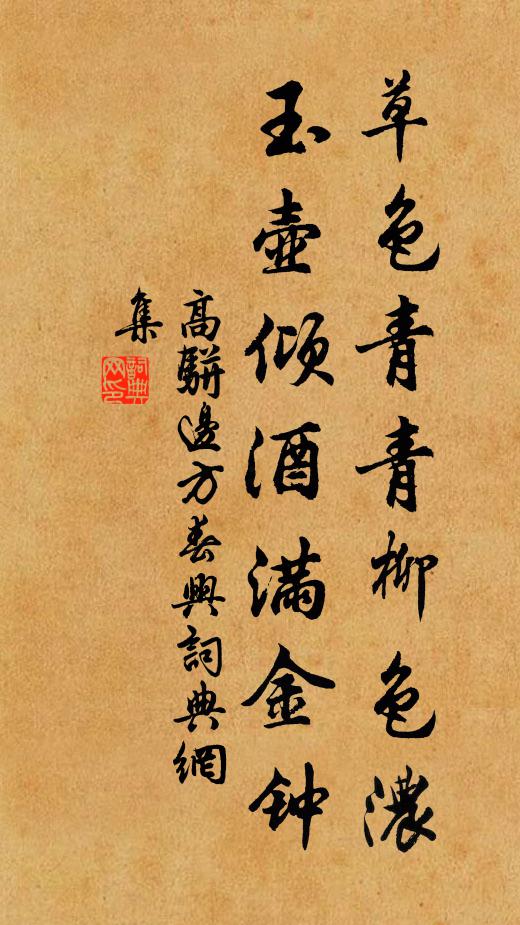 草色青青柳色濃
玉壺傾酒滿金钟
高駢邊方春興詞典網
集
詞典网印